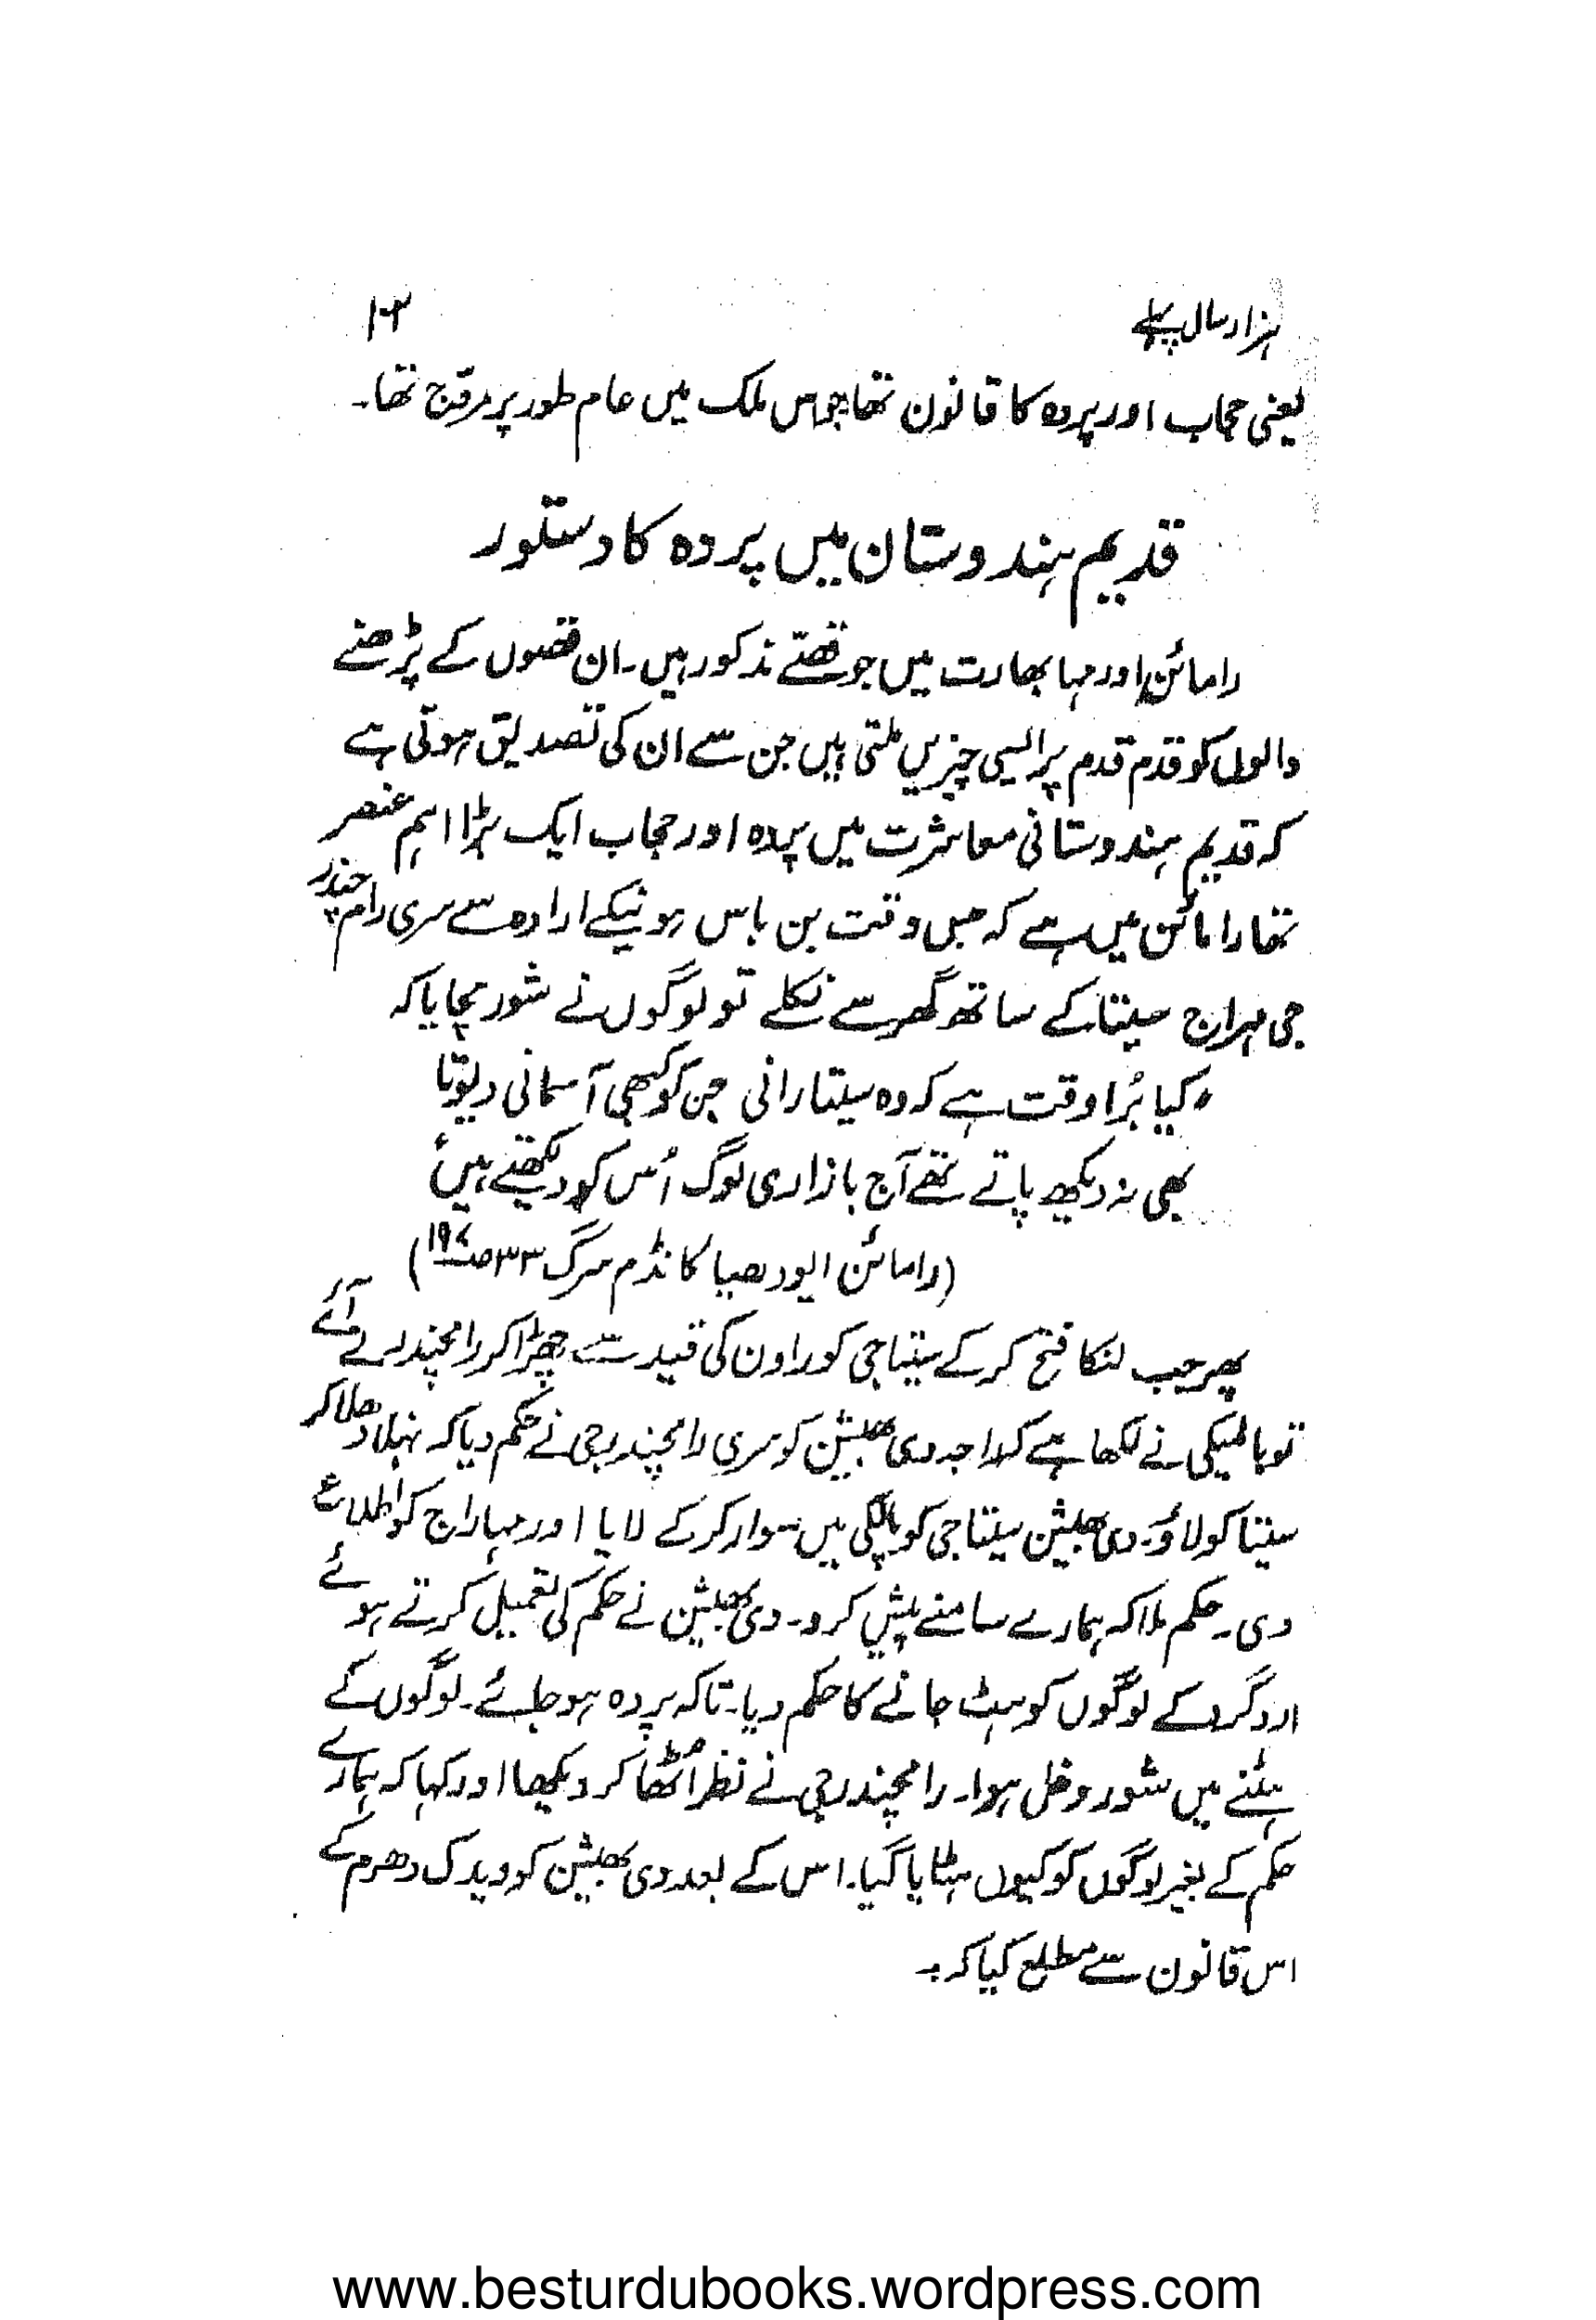 ہزار سال پہلے
۱۰۲
یعنی حجاب اور پردہ کا قانون تھا جو اس ملک میں عام طور پر مروّج تھا۔
قدیم ہندوستان میں پردہ کا دستور
رامائن اور مہا بھارت میں جو قصّے مذکور ہیں۔ ان قصوں کے پڑھنے
والوں کو قدم قدم پر ایسی چیزیں ملتی ہیں جن سے ان کی تصدیق ہوتی ہے
کہ قدیم ہندوستانی معاشرت میں پردہ اور حجاب ایک بڑا اہم عنصر
تھا رامائن میں ہے کہ جس وقت بن باس ہونیکے ارادہ سے سری رام چندر
جی مہراج سیتا کے ساتھ گھر سے نکلے تو لوگوں نے شور مچایا کہ
"کیا بُرا وقت ہے کہ وہ سیتا رانی جن کو کبھی آسمانی دیوتا
بھی نہ دیکھ پاتے تھے آج بازاری لوگ اُس کو دیکھتے ہیں"
(رامائن ایودھیا کانڈم سرگ ۳۳ ص۱۹۷)
پھر جب لنکا فتح کر کے سیتا جی کو راون کی قید سے چھڑا کر رامچندر لے آئے
تو بالمیکی نے لکھا ہے کہ راجہ وی بھیشن کو سری رامچندر جی نے حکم دیا کہ نہلا دھلا کر
سیتا کو لاؤ۔ وی بھیشن سیتا جی کو پالکی میں سوار کر کے لایا اور مہاراج کو اطلاع
دی۔ حکم ملا کہ ہمارے سامنے پیش کرو۔ وی بھیشن نے حکم کی تعمیل کرتے ہوئے
ارد گرد کے لوگوں کو ہٹ جانے کا حکم دیا۔ تاکہ پردہ ہو جائے۔ لوگوں کے
ہٹنے میں شور و غل ہوا۔ رامچندر جی نے نظر اُٹھا کر دیکھا اور کہا کہ ہمارے
حکم کے بغیر لوگوں کو کیوں ہٹایا گیا۔ اس کے بعد وی بھیشن کو ویدک دھرم کے
اس قانون سے مطلع کیا کہ :۔
www.besturdubooks.wordpress.com